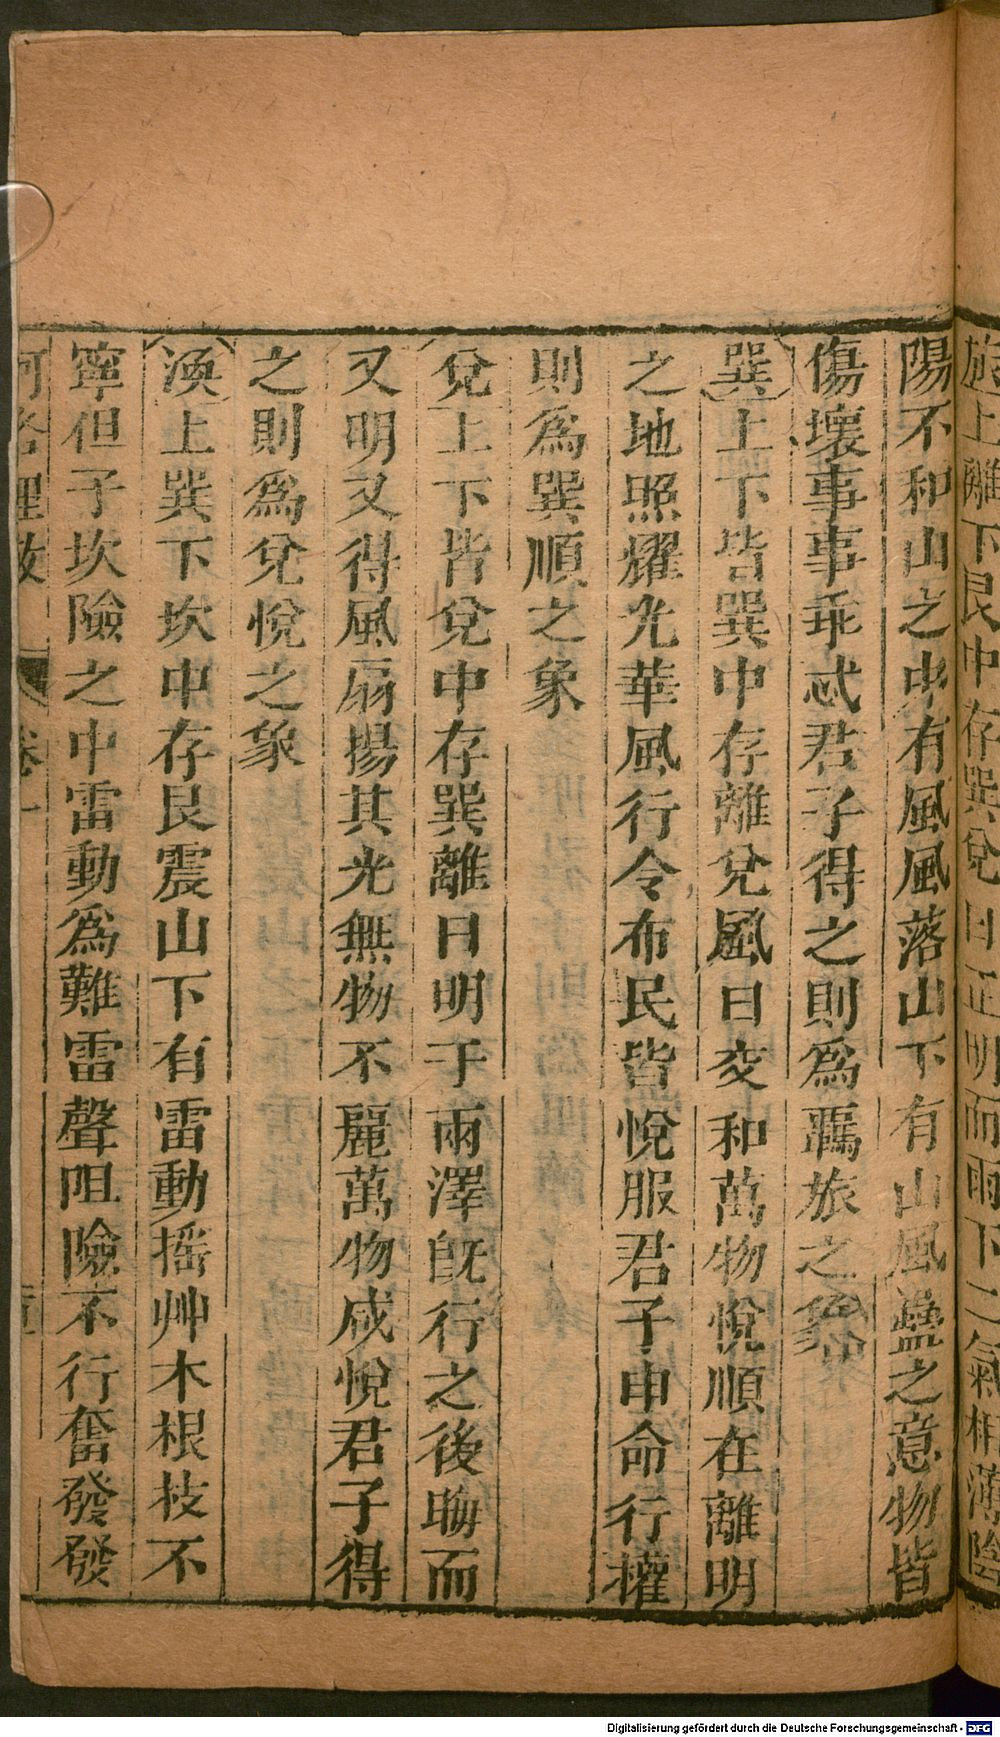 旅上離下艮中存巽兌日正明而雨下二氣相薄陰
陽不和山之中有風風落山下有山風蠱之意物皆
傷壞事事乖忒君子得之則為羈旅之象
巽上下皆巽中存離兌風日交和萬物悅順在離明
之地照耀光華風行令布民皆悅服君子申命行權
則為巽順之象
兌上下皆兌中存巽離日明于雨澤既行之後晦而
又明又得風扇揚其光無物不麗萬物咸悅君子得
之則為兌悅之象
渙上巽下坎中存艮震山下有雷動搖艸木根技不
寧但子坎險之中雷動為難雷聲阻險不行奮發發
河洛理數 卷一
Digitalisierung gefördert durch die Deutsche Forschungsgemeinschaft - DFG